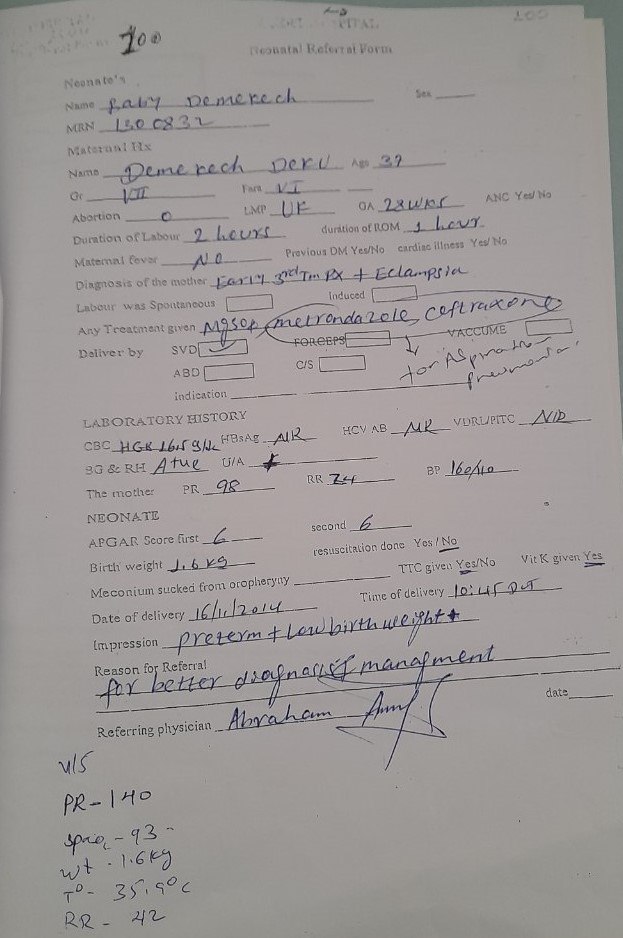 200
100
Neonatal Referral Form
Neonate's
Name Baby Demerech Sex
MRN 1300832
Maternal Hx
Name Demerech Deku Age 37
Gr VII Para VI
Abortion 0 LMP UK GA 28wks ANC Yes/ No
Duration of Labour 2 hours duration of ROM 1 hour
Maternal fever NO Previous DM Yes/No cardiac illness Yes/ No
Diagnosis of the mother Early 3rd Tm PX + Eclampsia
Labour was Spontaneous Induced
Any Treatment given Mgso4, metrondazole, ceftraxone
Deliver by SVD FORCEPS VACCUME
ABD C/S for Aspiration pneumonia.
indication
LABORATORY HISTORY
CBC HGB 16.5 g/dc HBsAg NR HCV AB NR VDRL/PITC N/D
BG & RH A+ve U/A
The mother PR 98 RR 24 BP 160/110
NEONATE
APGAR Score first 6 second 6
Birth weight 1.6 kg resuscitation done Yes / No
Meconium sucked from oropherynx TTC given Yes/No Vit K given Yes
Date of delivery 16/11/2014 Time of delivery 10:45
Impression preterm + Low birth weight +
Reason for Referral
for better diagnosis & managment
Referring physician Abraham date
V/S
PR - 140
SPO2 - 93
wt - 1.6kg
T° - 35.9°C
RR - 42